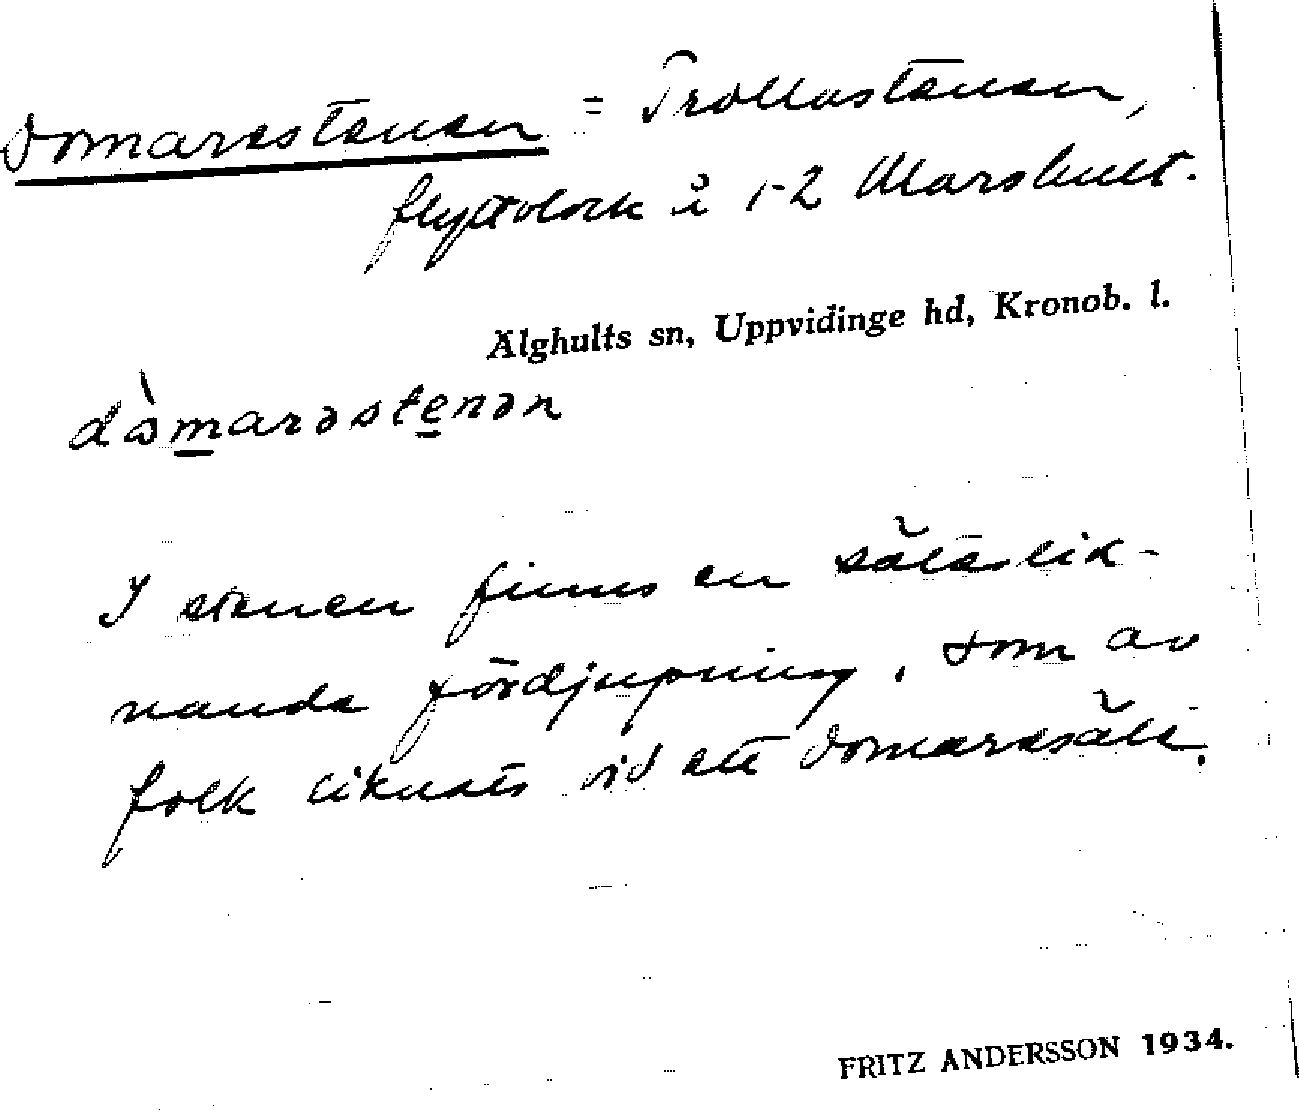 Domarestenen = Trollastenen,
flyttblock å 1-2 Marshult.
Älghults sn, Uppvidinge hd, Kronob. l.
dòmarəstenən
I stenen finns en säteslik-
nande fördjupning, som av
folk liknats vid ett domaresäte.
FRITZ ANDERSSON 1934.